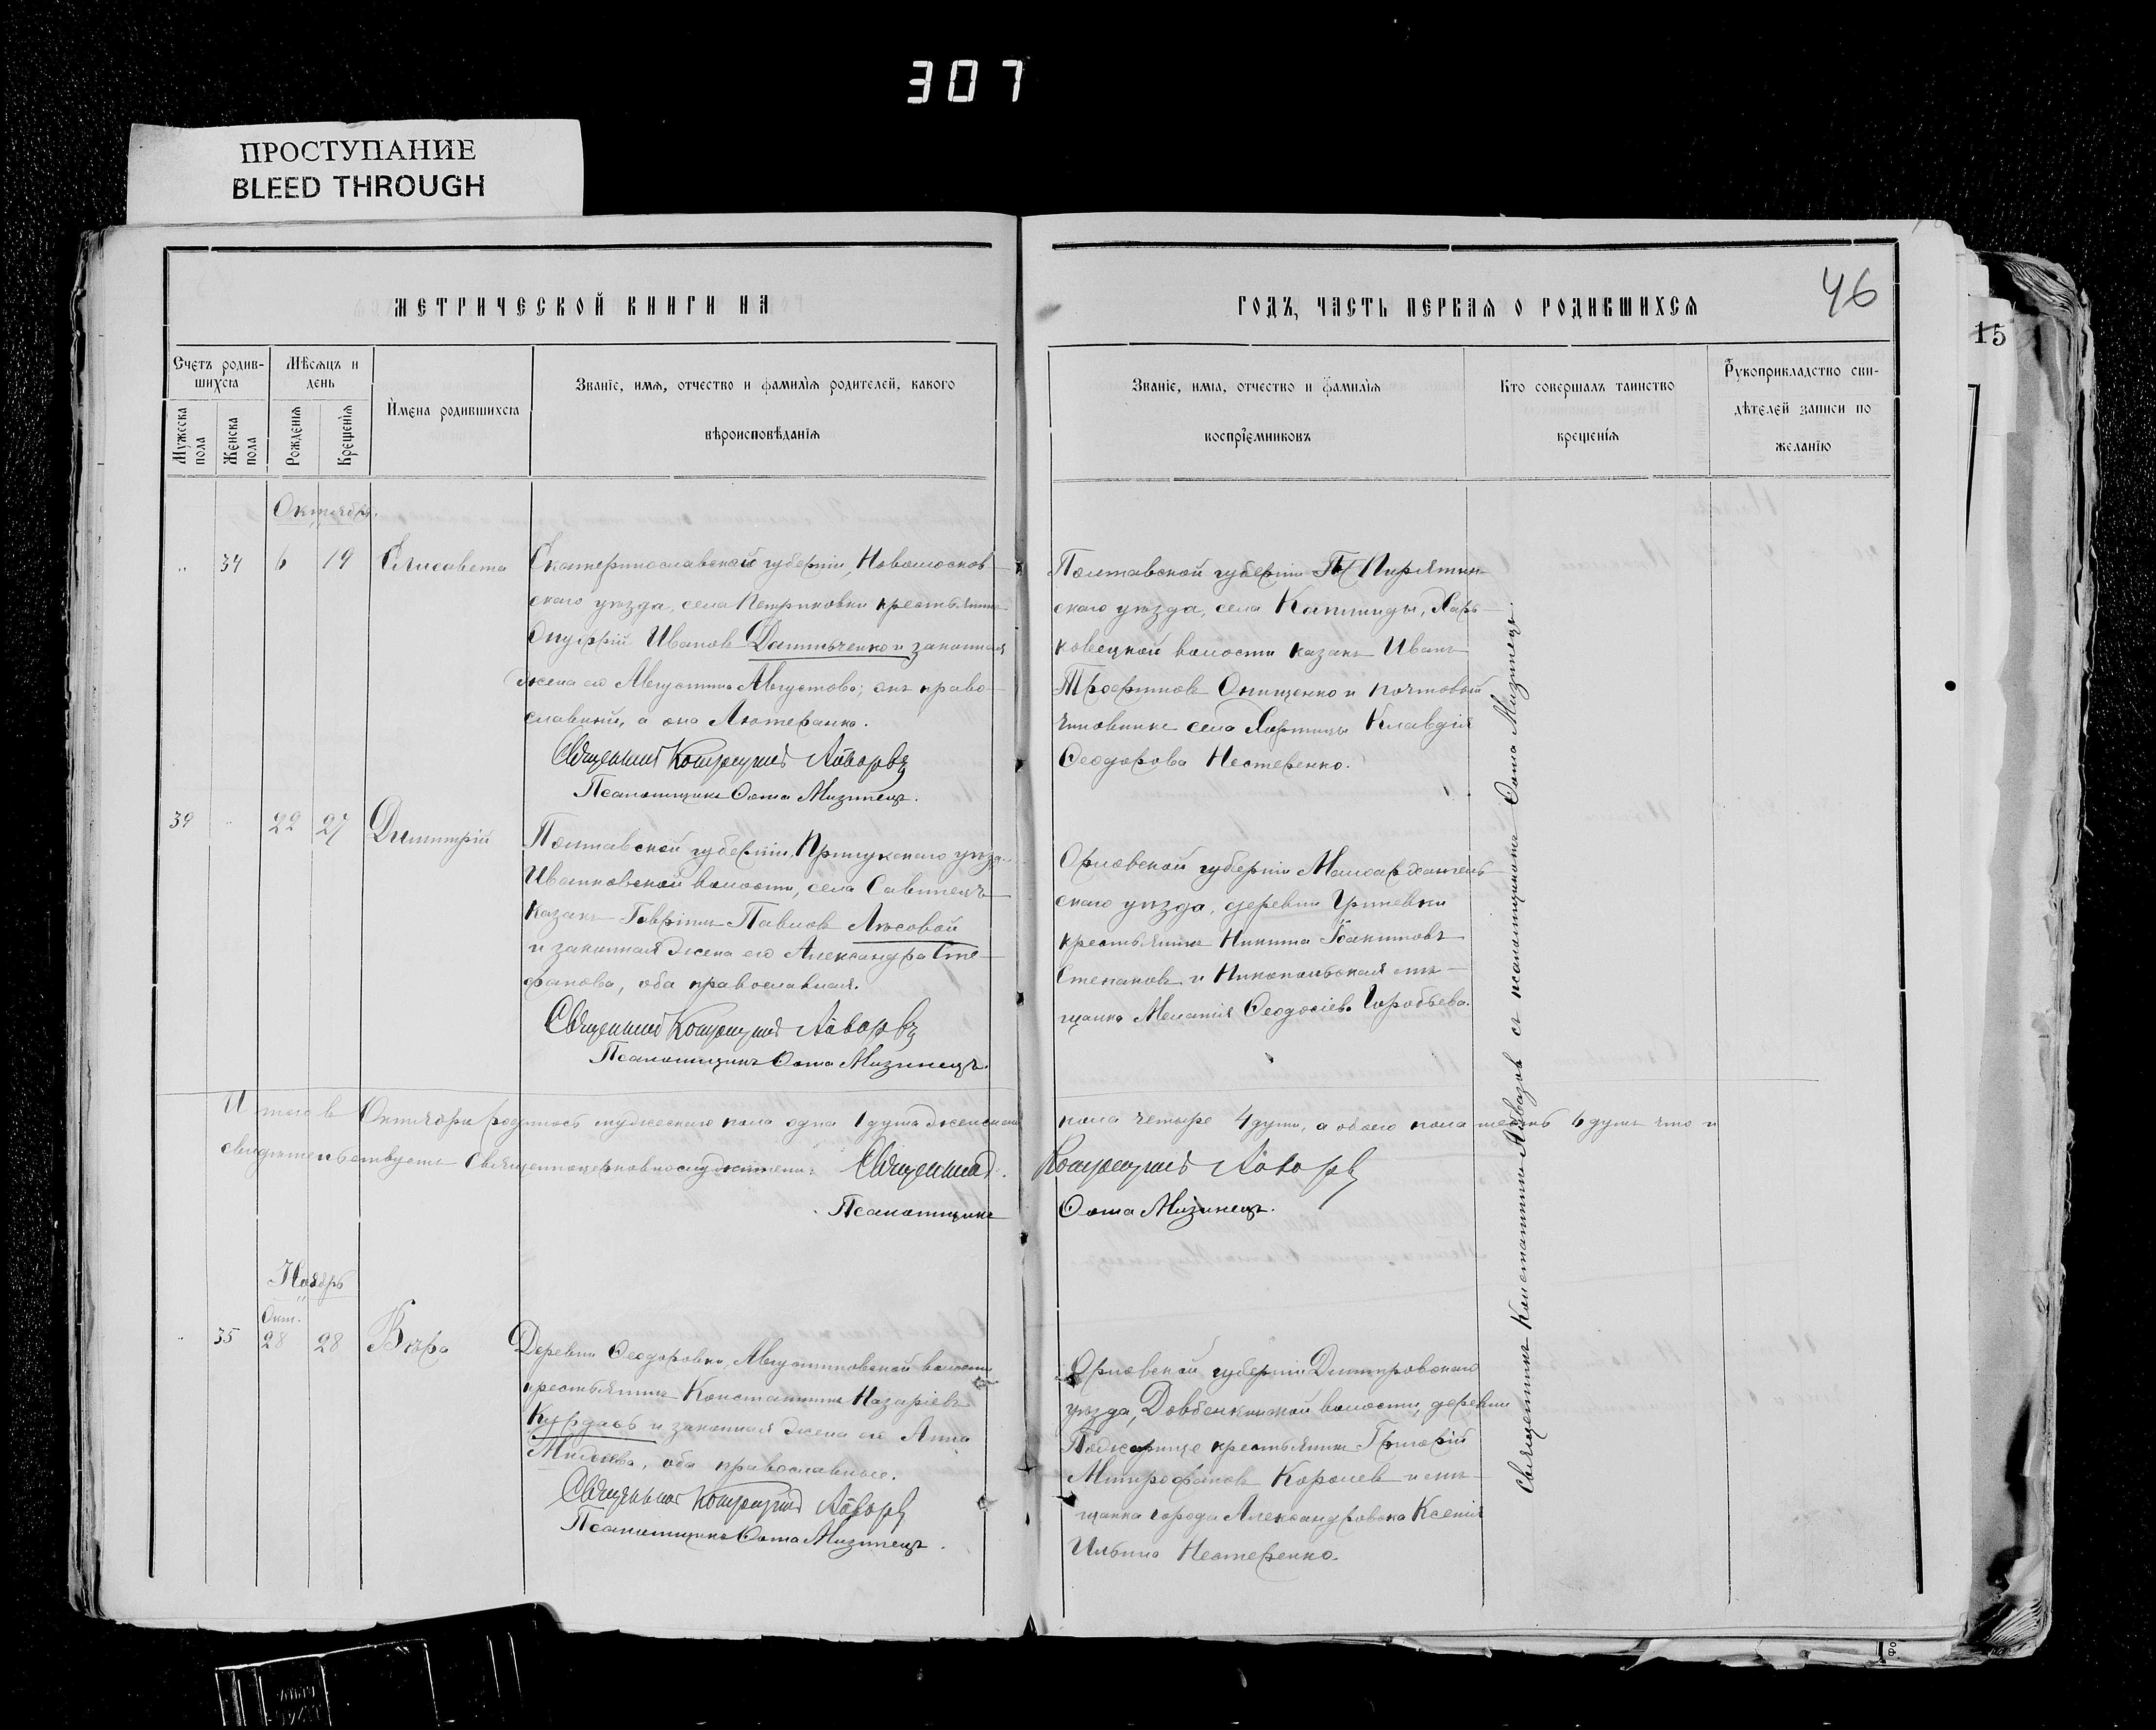 307
ПРОСТУПАНИЕ
BLEED THROUGH
МЕТРИЧЕСКОЙ КНИГИ НА
ГОДЪ, ЧАСТЬ ПЕРВАЯ О РОДИВШИХСЯ
46
15
Счетъ родив-
шихся
Мѣсяцъ и
день
Мужеска
пола
Женска
пола
Рожденія
Крещенія
Имена родившихся
Званіе, имя, отчество и фамилія родителей, какого
вѣроисповѣданія
Званіе, имя, отчество и фамилія
воспріемниковъ
Кто совершалъ таинство
крещенія
Рукоприкладство сви-
дѣтелей записи по
желанію
Октябрь.
34 6 19 Елисавета
Екатеринославской губерніи, Новомосков-
скаго уѣзда, села Петриковки крестьянинъ
Онуфрій Иванов Данильченко и законная
жена его Августина Августова; онъ право-
славный, а она Лютеранка.
Священник Константин Айвазов
Псаломщикъ Ѳома Мизинецъ.
Полтавской губерніи Пирятин-
скаго уѣзда, села Капинцы, Харь-
ковецкой волости казакъ Иванъ
Трофимовъ Онищенко и почтовой
чиновникъ села Хортицы Клавдія
Ѳеодорова Нестеренко.
39 22 27 Димитрій
Полтавской губерніи, Прилукскаго уѣзда
Иваньковской волости, села Савинецъ
казакъ Гавріилъ Павлов Лѣсовой
и законная жена его Александра Сте-
фанова, оба православныя.
Священник Константин Айвазов
Псаломщикъ Ѳома Мизинецъ.
Орловской губерніи Малоархангель-
скаго уѣзда, деревни
крестьянинъ Никита Іоакимовъ
Степановъ и Никопольская мѣ-
щанка Меланія Ѳеодосіева Горобьева.
Итого в Октябрѣ родилось мужескаго пола одна 1 душа женскаго
пола четыре 4 души, а обоего пола 6 душъ что и
свидѣтельствуемъ Священноцерковнослужители: Священник
Константин Айвазов
Псаломщикъ
Ѳома Мизинецъ.
Ноябрь
Окт.
35 28 28 Вѣра
Деревни Ѳеодоровки, Августиновской волости
крестьянинъ Константинъ Назаріевъ
Курдасъ и законная жена его Анна
оба православные.
Священник Константин Айвазов
Псаломщикъ Ѳома Мизинецъ.
Орловской губерніи Дмитровскаго
уѣзда, волости, деревни
крестьянинъ Григорій
Митрофановъ Королевъ и мѣ-
щанка города Александровска Ксенія
Ильина Нестеренко.
Священникъ Константинъ Айвазов съ псаломщикомъ Ѳома Мизинецъ.